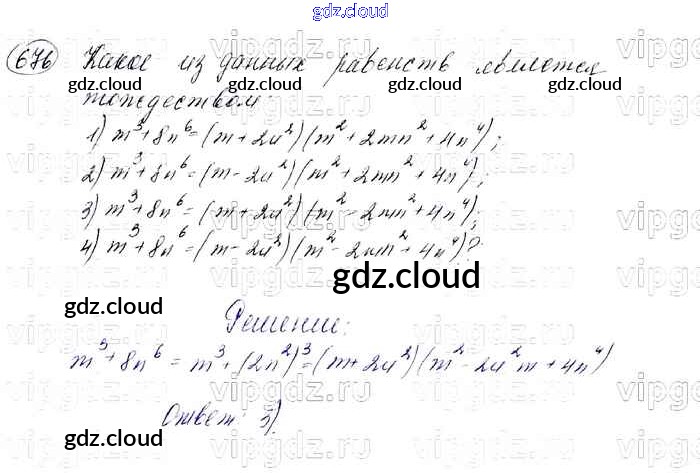 gdz.cloud
676 Какое из данных равенств является
gdz.cloud gdz.cloud
тождеством:
1) m³+8n⁶=(m+2n²)(m²+2mn²+4n⁴);
2) m³+8n⁶=(m-2n²)(m²+2mn²+4n⁴);
3) m³+8n⁶=(m+2n²)(m²-2mn²+4n⁴);
4) m³+8n⁶=(m-2n²)(m²-2mn²+4n⁴)?
gdz.cloud
gdz.cloud gdz.cloud
Решение:
m³+8n⁶ = m³+(2n²)³=(m+2n²)(m²-2n²m+4n⁴)
Ответ: 3).
gdz.cloud gdz.cloud